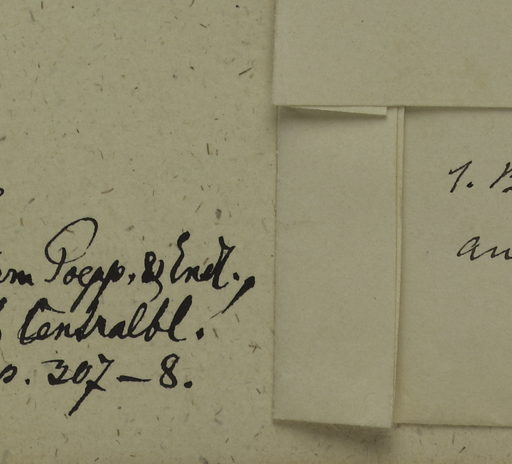 Poepp. & Endl.,
Centralbl.
p. 307-8.
1.